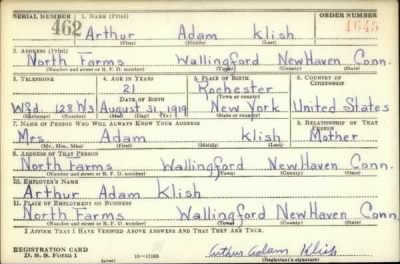 SERIAL NUMBER 1. NAME (Print) ORDER NUMBER
462 Arthur Adam Klish 1645
(First) (Middle) (Last)
2. ADDRESS (Print)
North Farms Wallingford New Haven Conn.
(Number and street or R. F. D. number) (Town) (County) (State)
3. TELEPHONE 4. AGE IN YEARS 5. PLACE OF BIRTH 6. COUNTRY OF CITIZENSHIP
21 Rochester
DATE OF BIRTH (Town or county)
Wfd. 123 W3 August 31, 1919 New York United States
(Exchange) (Number) (Mo.) (Day) (Yr.) (State or country)
7. NAME OF PERSON WHO WILL ALWAYS KNOW YOUR ADDRESS 8. RELATIONSHIP OF THAT PERSON
Mrs. Adam Klish Mother
(Mr., Mrs., Miss) (First) (Middle) (Last)
9. ADDRESS OF THAT PERSON
North Farms Wallingford New Haven Conn.
(Number and street or R. F. D. number) (Town) (County) (State)
10. EMPLOYER'S NAME
Arthur Adam Klish
11. PLACE OF EMPLOYMENT OR BUSINESS
North Farms Wallingford New Haven Conn.
(Number and street or R. F. D. number) (Town) (County) (State)
I AFFIRM THAT I HAVE VERIFIED ABOVE ANSWERS AND THAT THEY ARE TRUE.
REGISTRATION CARD
D. S. S. Form 1 (over) Arthur Adam Klish
(Registrant's signature)